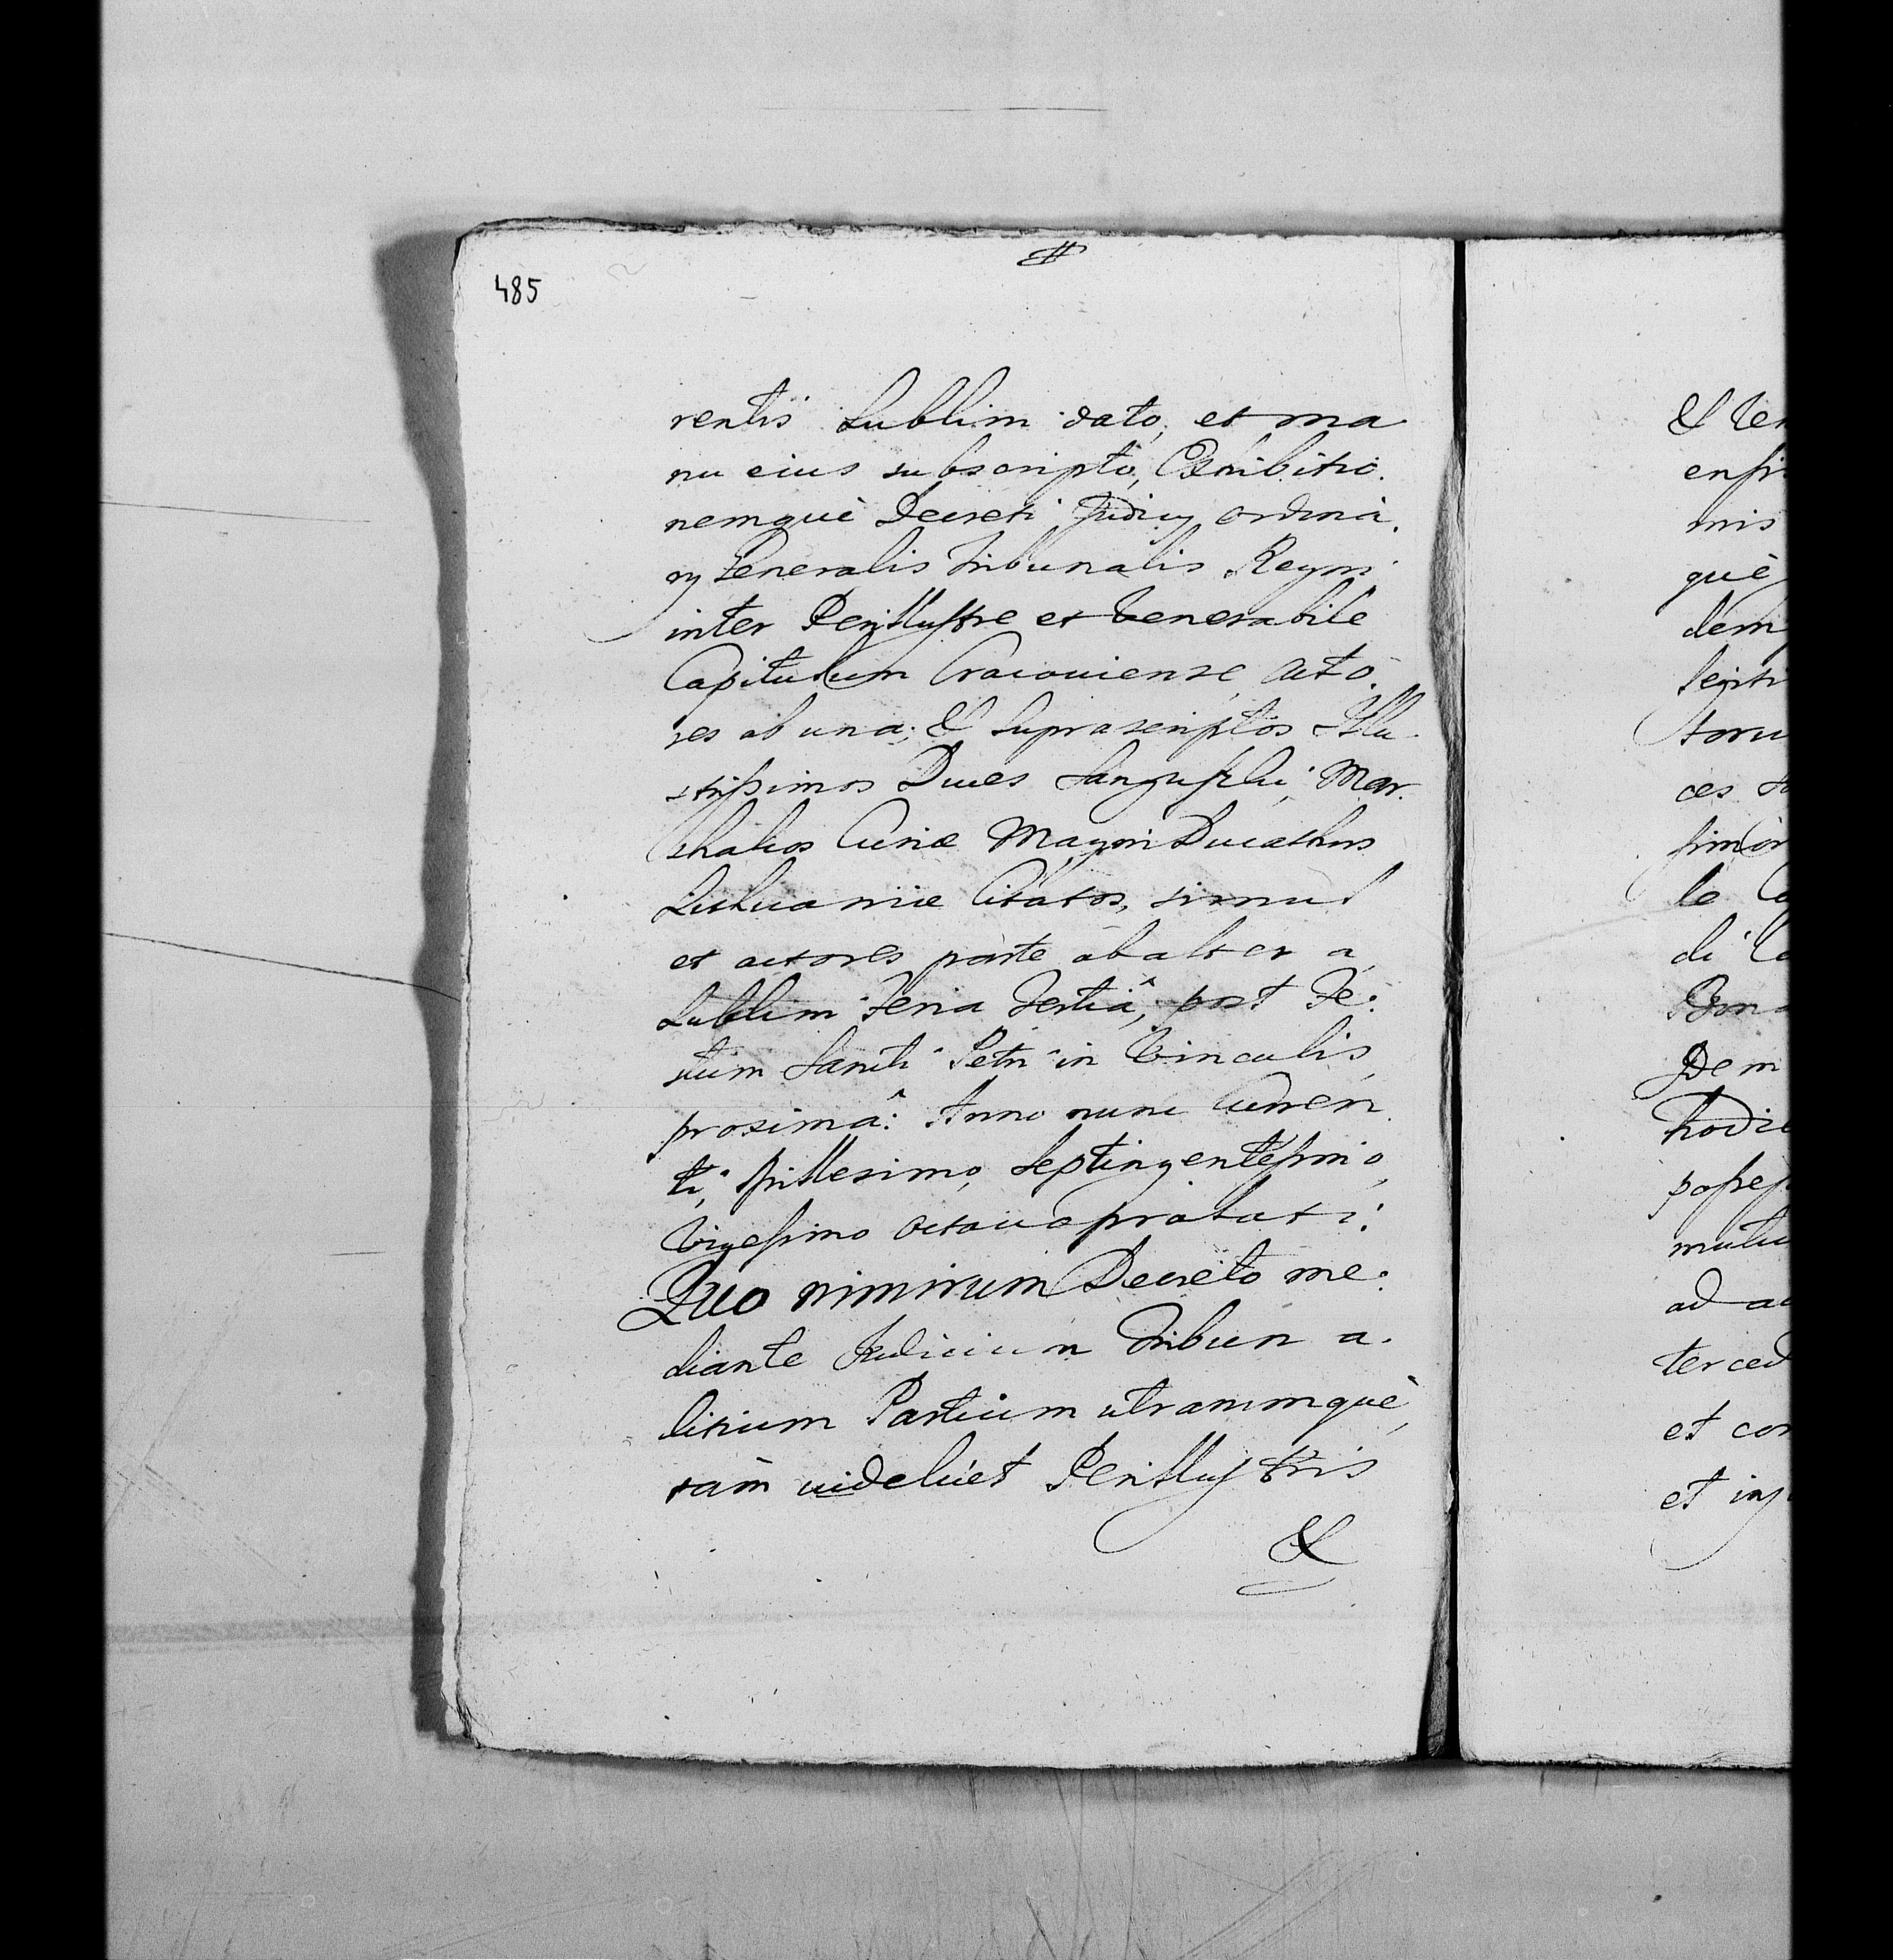 #
485
rentis Lublim dato, et ma
nu eius subscripto, Exhibitio.
nemquè Decreti Judicy ordina.
ry Generalis Tribunalis Regni
inter Perillustre et Venerabile
Capitulum Cracouiense Acto.
res ab una; & Suprascriptos Illu.
strissimos Duces Sangusţki Mar.
chalcos Curiæ Magni Ducathus
Lithuaniæ Citatos, simul
et actores parte ab altera
Lublim Feria Tertiâ, post Fe:
stum Sancti Petri in Vinculis
proximâ: Anno nunc Curren
ti, Millesimo, Septingentesimo,
Vigesimo octauo prolati:
Quo nimirum Decreto me:
diante Judicium Tribuna.
litium Partium utrarumquè,
tam uidelicet Perillustris
&
& Ve
mis
què
dem
ces
le
di
Dem
hodie
ad
et
et